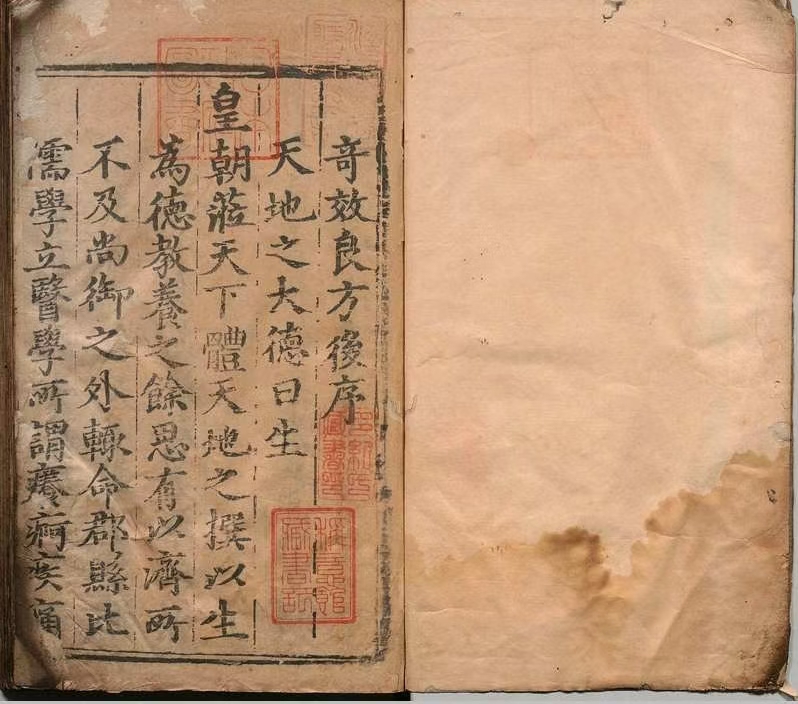 奇效良方後序
天地之大德曰生
皇朝蒞天下體天地之撰以生
為德教養之餘思有以濟所
不及尚御之外輙命郡縣比
儒學立醫學所謂癢痾疾痛